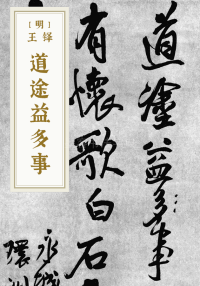 [明]
王铎
道途益多事
道塗益多事
有懷歌白石
永城
環